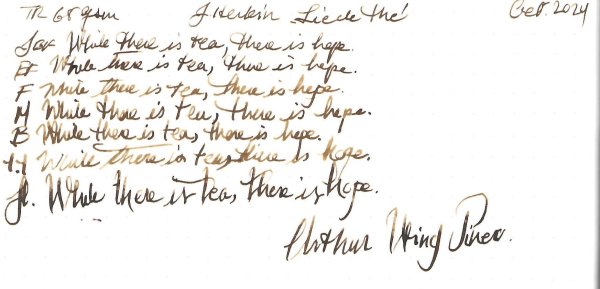 TR 68 gsm J Herbin Lie de Thé Oct. 2024
Jav While there is tea, there is hope.
EF While there is tea, there is hope.
F While there is tea, there is hope.
M While there is tea, there is hope.
B While there is tea, there is hope.
1.1 While there is tea, there is hope.
fl. While there is tea, there is hope.
Arthur Wing Pinero.